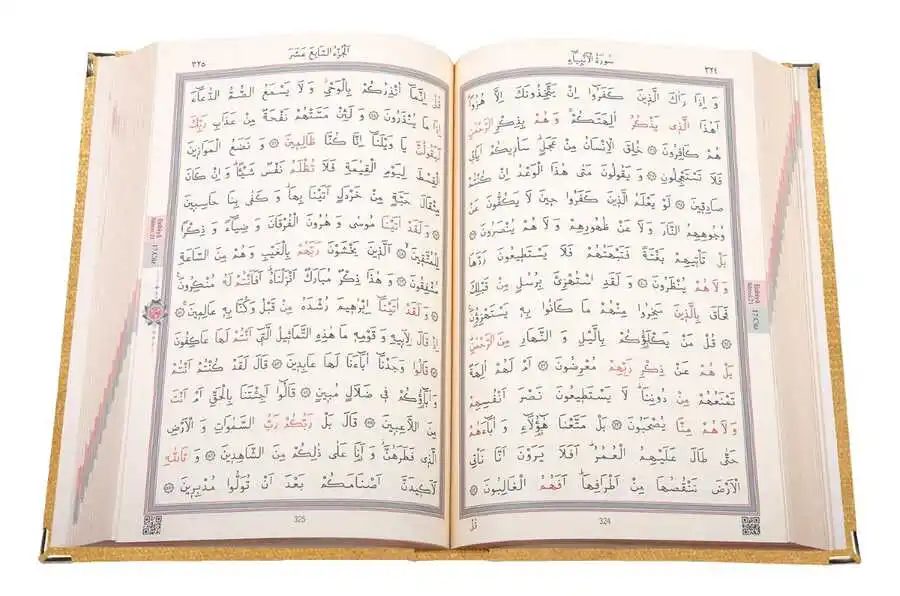 سُورَةُ الْاَنْبِيَاءِ
٣٢٤
وَ اِذَا رَاٰكَ الَّذِينَ كَفَرُوٓا اِنْ يَتَّخِذُونَكَ اِلَّا هُزُوًا
اَهٰذَا الَّذِي يَذْكُرُ اٰلِهَتَكُمْ وَ هُمْ بِذِكْرِ الرَّحْمٰنِ
هُمْ كَافِرُونَ ۝ خُلِقَ الْاِنْسَانُ مِنْ عَجَلٍ سَاُرِيكُمْ اٰيَاتِي
فَلَا تَسْتَعْجِلُونِ ۝ وَ يَقُولُونَ مَتٰى هٰذَا الْوَعْدُ اِنْ كُنْتُمْ
صَادِقِينَ ۝ لَوْ يَعْلَمُ الَّذِينَ كَفَرُوا حِينَ لَا يَكُفُّونَ عَنْ
وُجُوهِهِمُ النَّارَ وَلَا عَنْ ظُهُورِهِمْ وَ لَا هُمْ يُنْصَرُونَ ۝
بَلْ تَأْتِيهِمْ بَغْتَةً فَتَبْهَتُهُمْ فَلَا يَسْتَطِيعُونَ رَدَّهَا
وَ لَا هُمْ يُنْظَرُونَ ۝ وَ لَقَدِ اسْتُهْزِئَ بِرُسُلٍ مِنْ قَبْلِكَ
فَحَاقَ بِالَّذِينَ سَخِرُوا مِنْهُمْ مَا كَانُوا بِهِ يَسْتَهْزِؤُنَ
۝ قُلْ مَنْ يَكْلَؤُكُمْ بِالَّيْلِ وَ النَّهَارِ مِنَ الرَّحْمٰنِ
بَلْ هُمْ عَنْ ذِكْرِ رَبِّهِمْ مُعْرِضُونَ ۝ اَمْ لَهُمْ اٰلِهَةٌ
تَمْنَعُهُمْ مِنْ دُونِنَا لَا يَسْتَطِيعُونَ نَصْرَ اَنْفُسِهِمْ
وَ لَا هُمْ مِنَّا يُصْحَبُونَ ۝ بَلْ مَتَّعْنَا هٰؤُلَاءِ وَ اٰبَاءَهُمْ
حَتّٰى طَالَ عَلَيْهِمُ الْعُمُرُ اَفَلَا يَرَوْنَ اَنَّا نَأْتِي
الْاَرْضَ نَنْقُصُهَا مِنْ اَطْرَافِهَا اَفَهُمُ الْغَالِبُونَ ۝
قُلْ
324
الْجُزْءُ السَّابِعَ عَشَرَ
٣٢٥
قُلْ اِنَّمَا اُنْذِرُكُمْ بِالْوَحْيِ وَ لَا يَسْمَعُ الصُّمُّ الدُّعَاءَ
اِذَا مَا يُنْذَرُونَ ۝ وَ لَئِنْ مَسَّتْهُمْ نَفْحَةٌ مِنْ عَذَابِ رَبِّكَ
لَيَقُولُنَّ يَا وَيْلَنَا اِنَّا كُنَّا ظَالِمِينَ ۝ وَ نَضَعُ الْمَوَازِينَ
الْقِسْطَ لِيَوْمِ الْقِيٰمَةِ فَلَا تُظْلَمُ نَفْسٌ شَيْئًا وَ اِنْ كَانَ
مِثْقَالَ حَبَّةٍ مِنْ خَرْدَلٍ اَتَيْنَا بِهَا وَ كَفٰى بِنَا حَاسِبِينَ
۝ وَ لَقَدْ اٰتَيْنَا مُوسٰى وَ هٰرُونَ الْفُرْقَانَ وَ ضِيَاءً وَ ذِكْرًا
لِلْمُتَّقِينَ ۝ اَلَّذِينَ يَخْشَوْنَ رَبَّهُمْ بِالْغَيْبِ وَ هُمْ مِنَ السَّاعَةِ
مُشْفِقُونَ ۝ وَ هٰذَا ذِكْرٌ مُبَارَكٌ اَنْزَلْنَاهُ اَفَاَنْتُمْ لَهُ مُنْكِرُونَ
۝ وَ لَقَدْ اٰتَيْنَا اِبْرٰهِيمَ رُشْدَهُ مِنْ قَبْلُ وَ كُنَّا بِهِ عَالِمِينَ ۝
اِذْ قَالَ لِاَبِيهِ وَ قَوْمِهِ مَا هٰذِهِ التَّمَاثِيلُ الَّتِي اَنْتُمْ لَهَا عَاكِفُونَ
۝ قَالُوا وَجَدْنَا اٰبَاءَنَا لَهَا عَابِدِينَ ۝ قَالَ لَقَدْ كُنْتُمْ اَنْتُمْ
وَ اٰبَاؤُكُمْ فِي ضَلَالٍ مُبِينٍ ۝ قَالُوا اَجِئْتَنَا بِالْحَقِّ اَمْ اَنْتَ
مِنَ اللَّاعِبِينَ ۝ قَالَ بَلْ رَبُّكُمْ رَبُّ السَّمٰوَاتِ وَ الْاَرْضِ
الَّذِي فَطَرَهُنَّ وَ اَنَا عَلٰى ذٰلِكُمْ مِنَ الشَّاهِدِينَ ۝ وَ تَاللّٰهِ
لَاَكِيدَنَّ اَصْنَامَكُمْ بَعْدَ اَنْ تُوَلُّوا مُدْبِرِينَ ۝
325